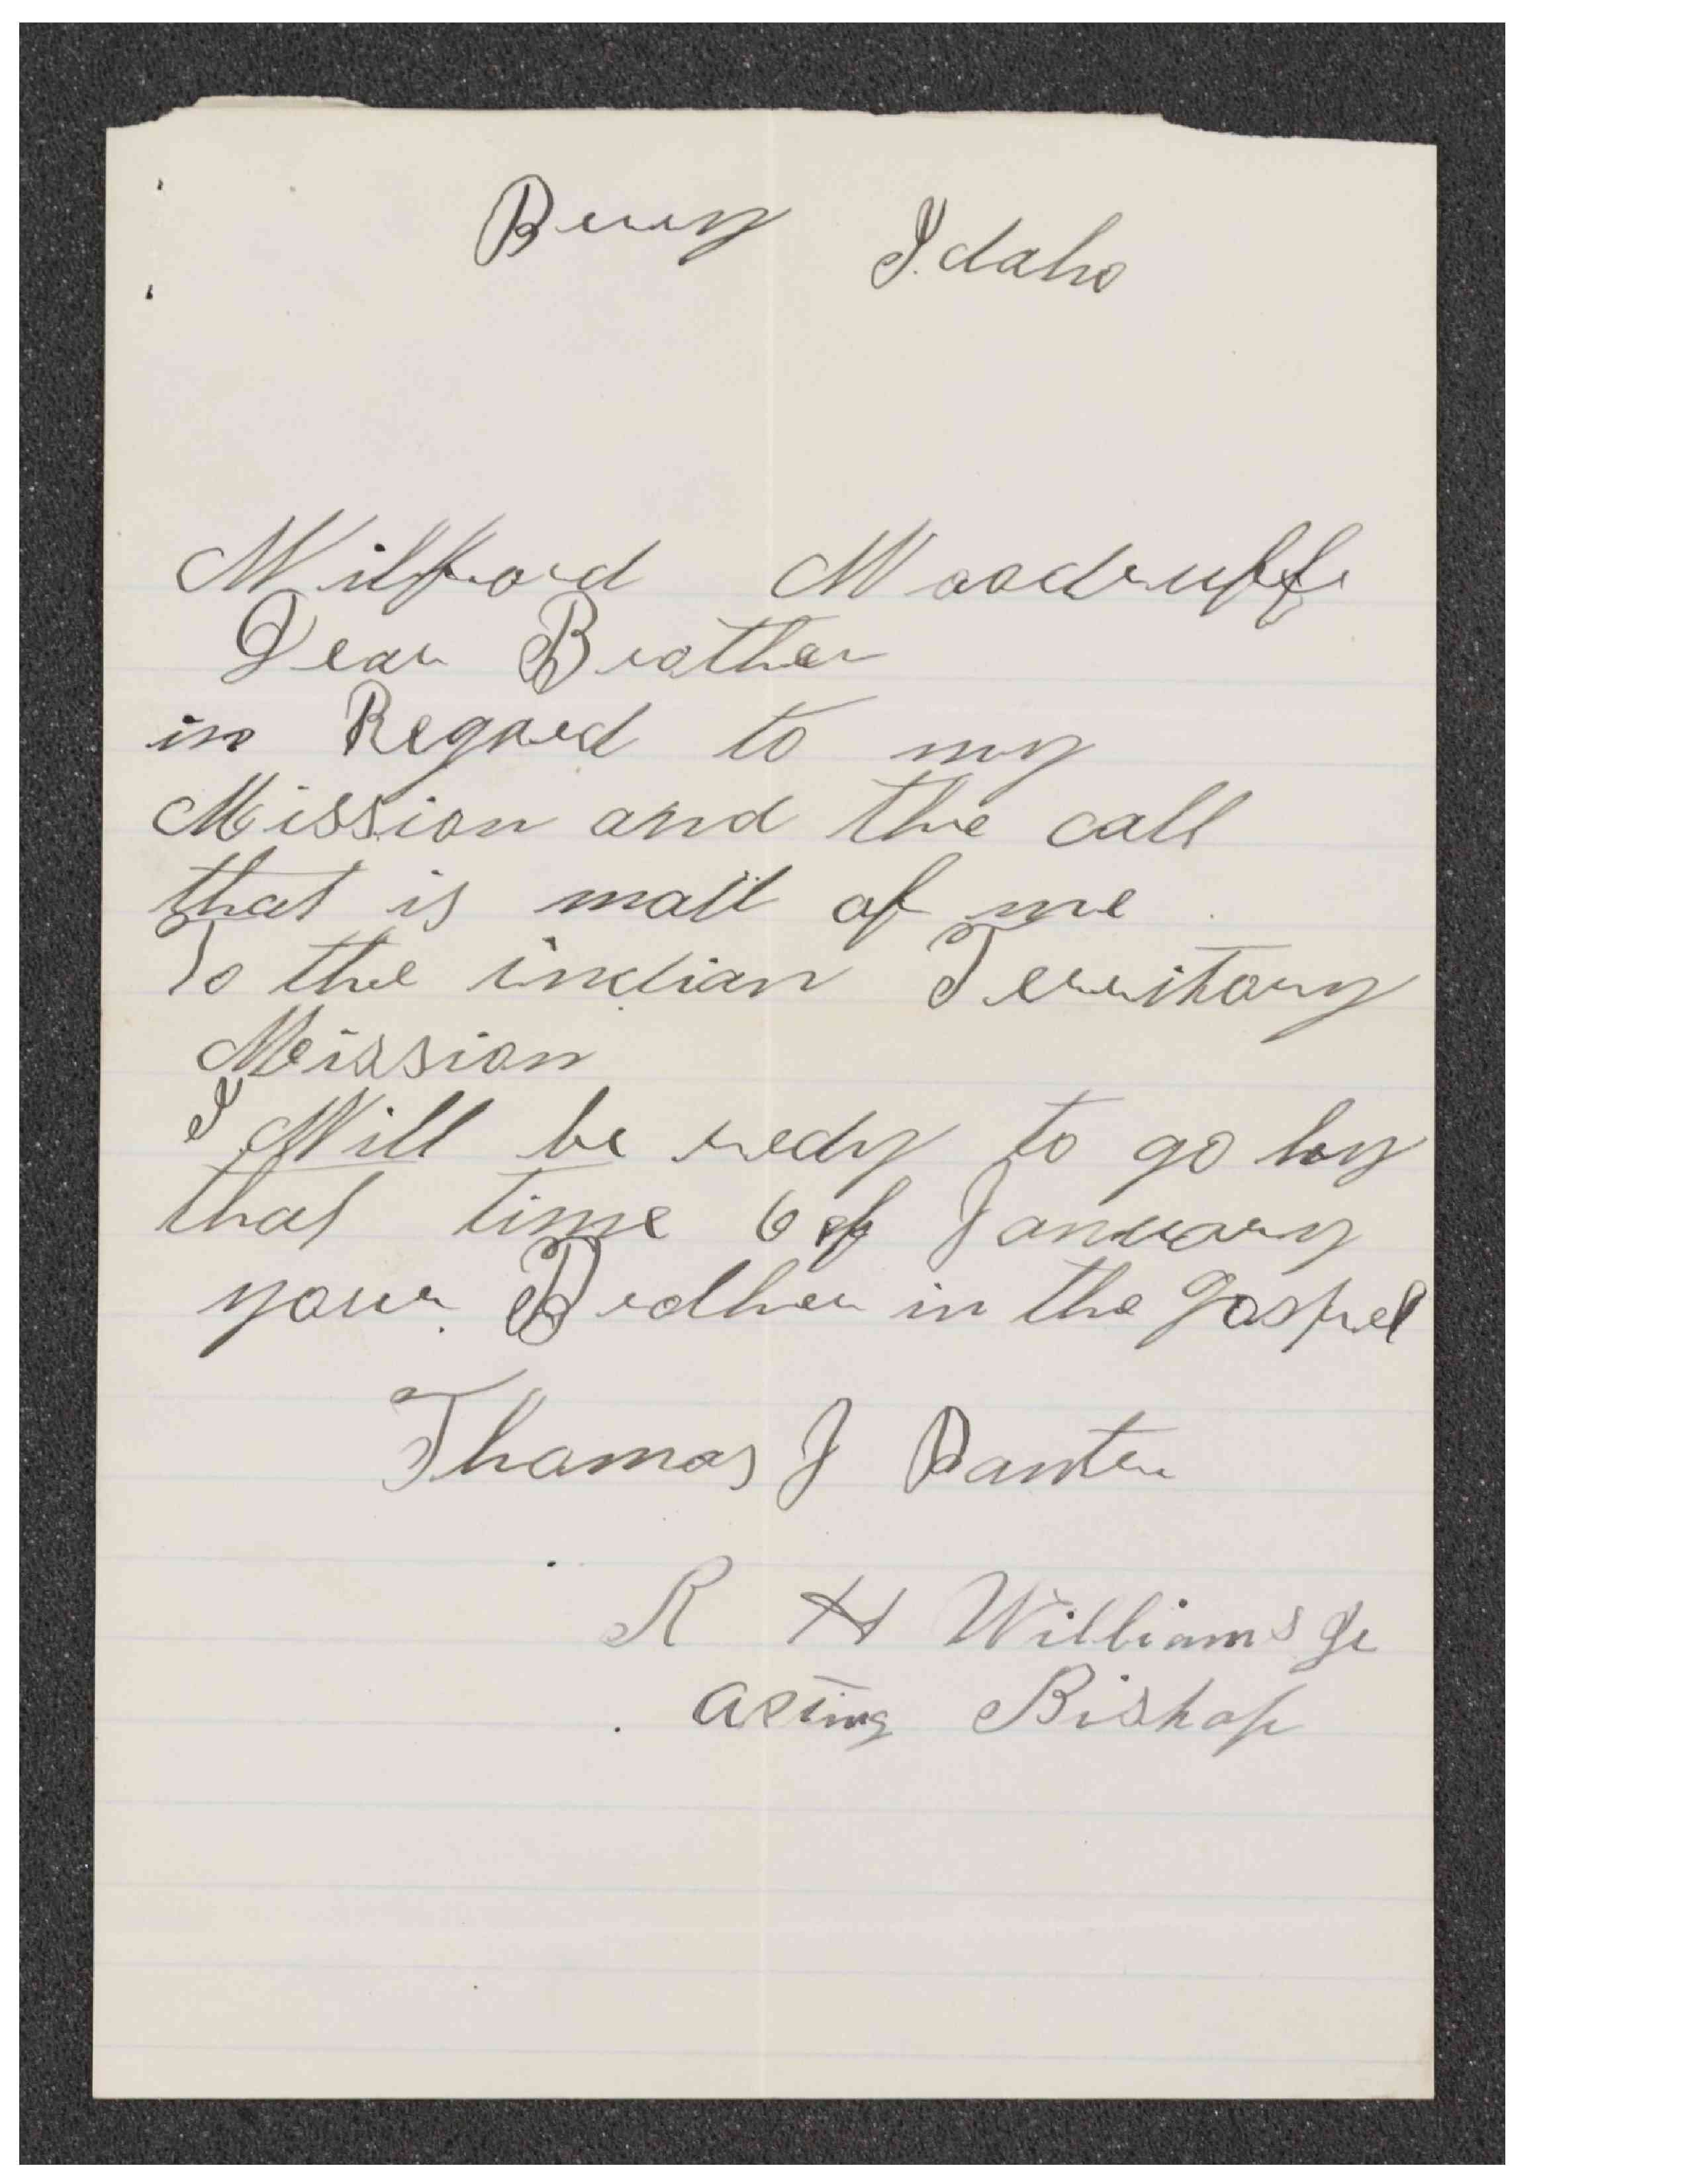 Idaho
Wilford Woodruff
Dear Brother
in Regard to my
Mission and the call
that is of me
To the indian Territory
Mission
I Will be redy to go by
that time 6 of January
your Brother in the gospel
Thomas J
R H Williams Jr
acting Bishop